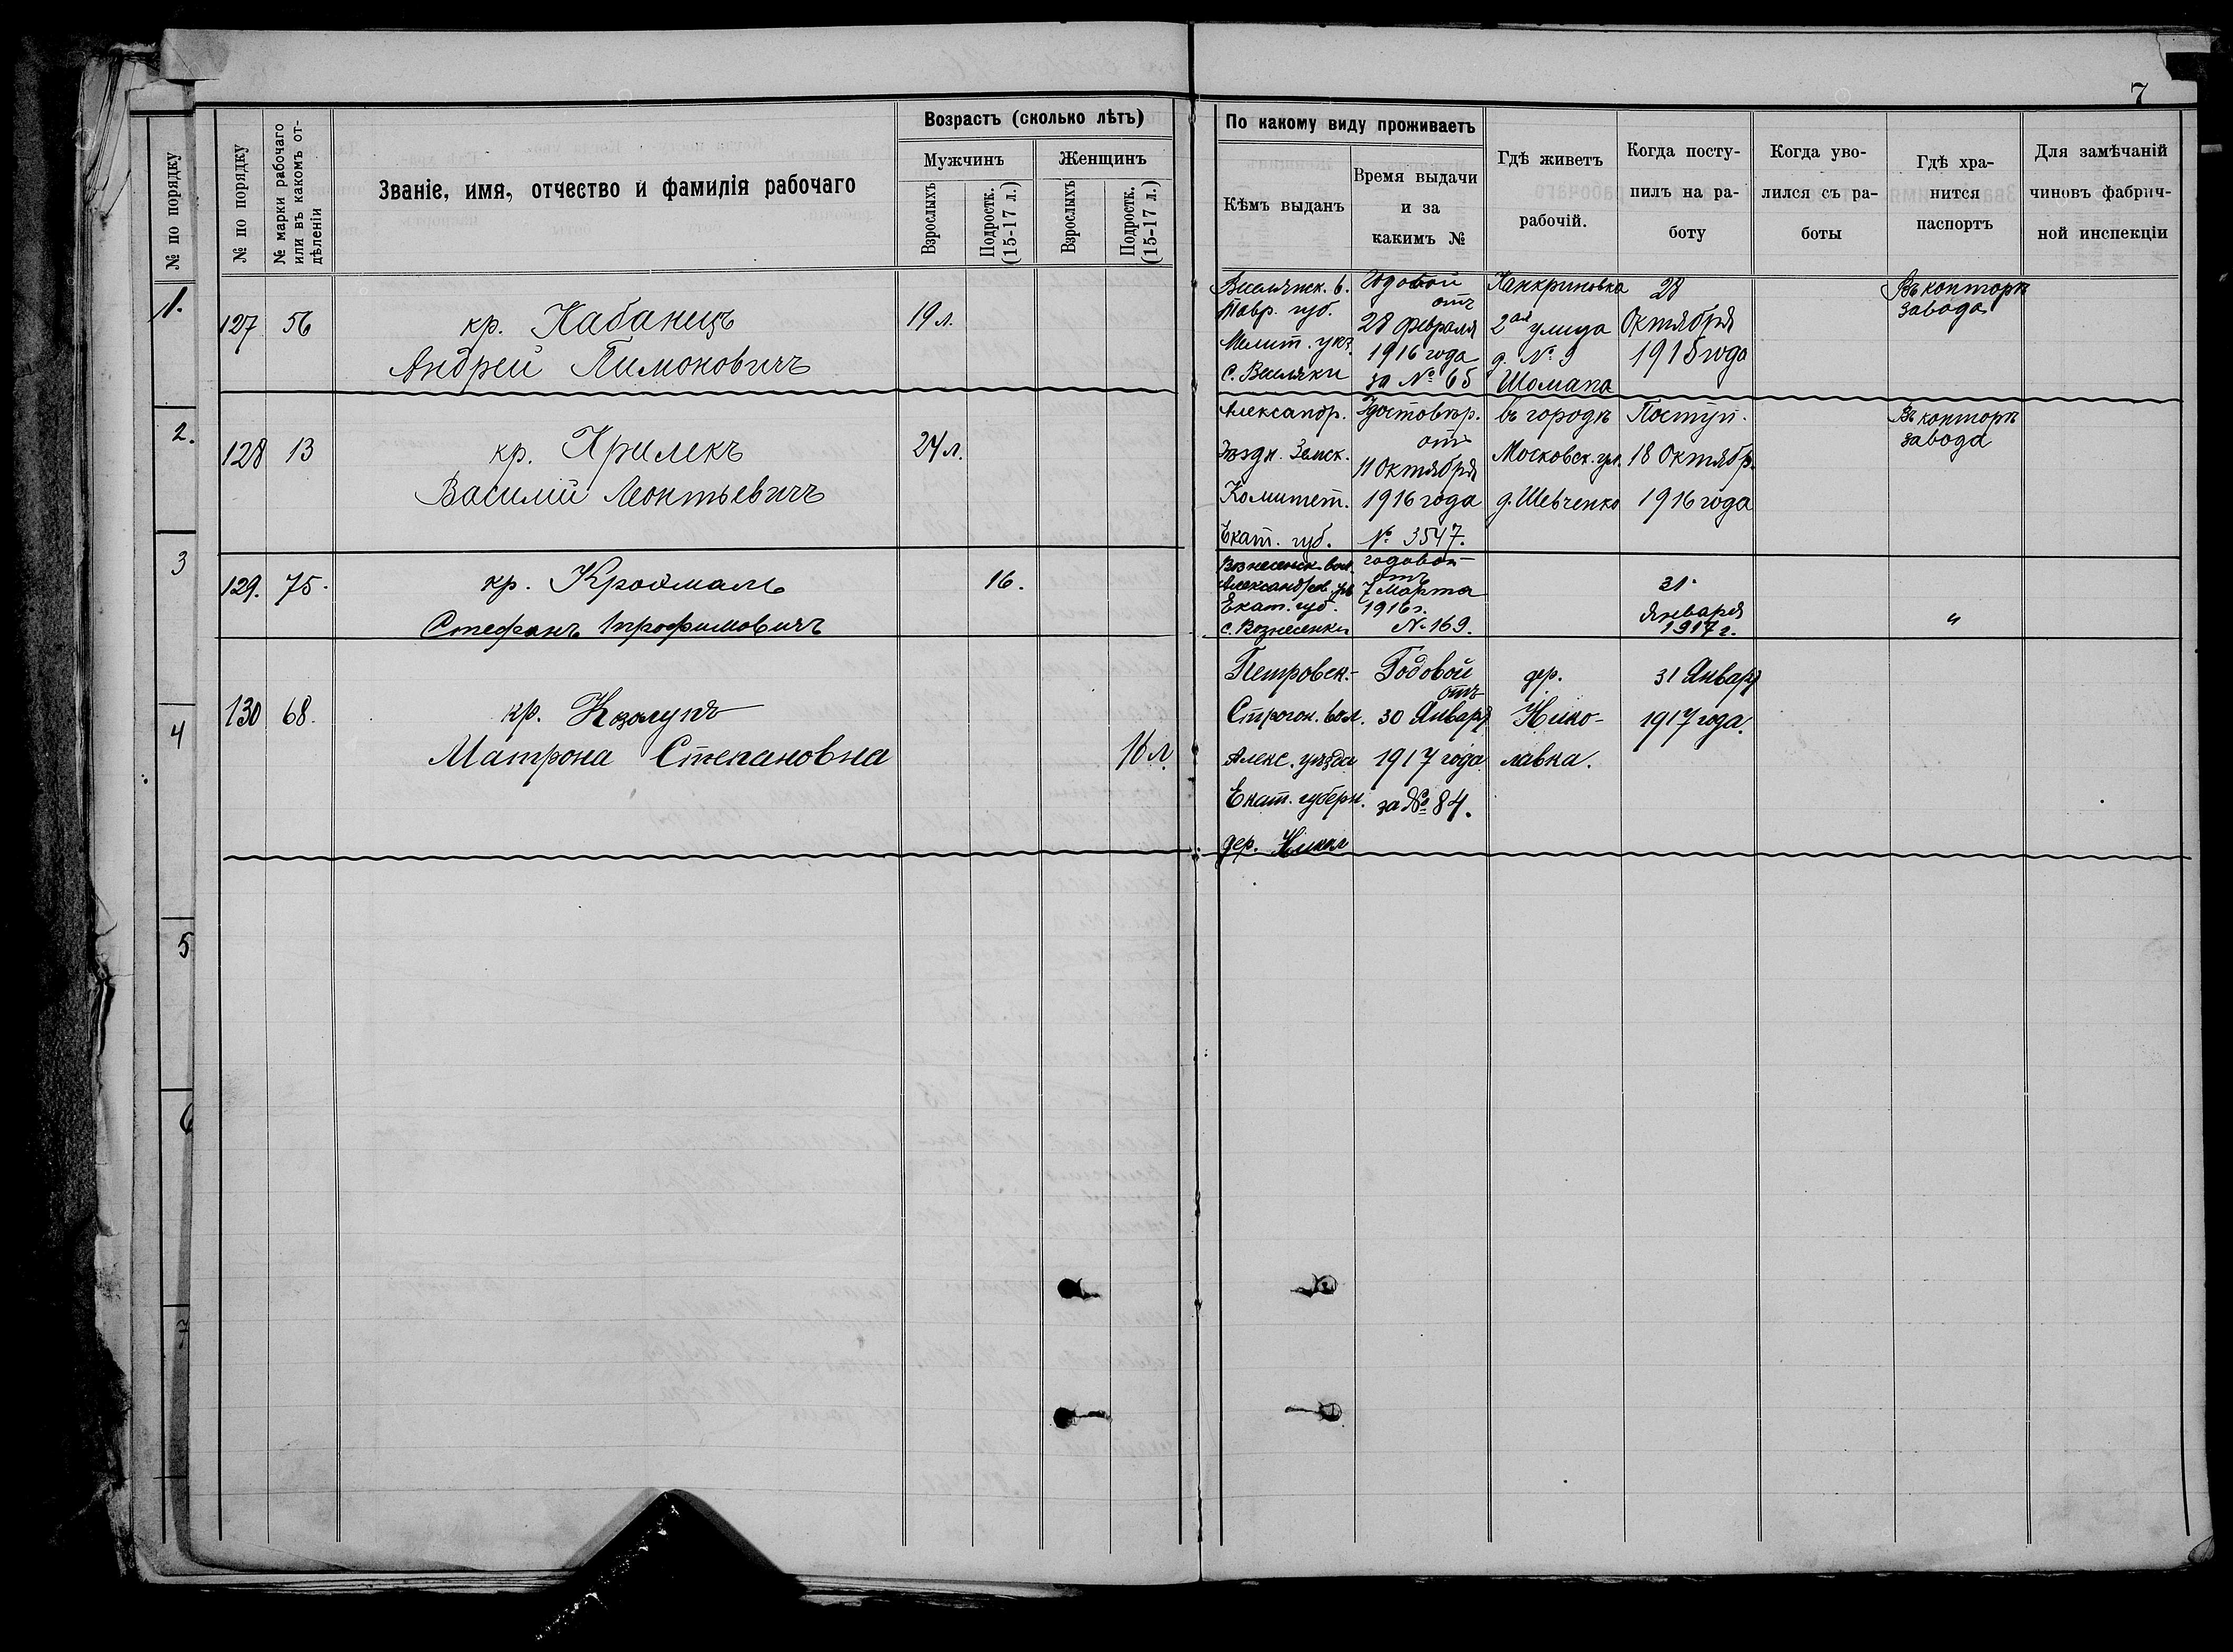 7
№ по порядку
№ по порядку
№ марки рабочаго или въ какомъ отдѣленіи
Званіе, имя, отчество и фамилія рабочаго
Возрастъ (сколько лѣтъ)
Мужчинъ
Женщинъ
Взрослыхъ
Подростк. (15-17 л.)
Взрослыхъ
Подростк. (15-17 л.)
По какому виду проживаетъ
Кѣмъ выданъ
Время выдачи
и за
какимъ №
Гдѣ живетъ
рабочій.
Когда посту-
пилъ на ра-
боту
Когда уво-
лился съ ра-
боты
Гдѣ хра-
нится
паспортъ
Для замѣчаній
чиновъ фабрич-
ной инспекціи
1.
127 56
кр. Кабанецъ
Андрей Пимоновичъ
19 л.
Тавр. губ.
Мелит. уѣз.
Годовой
отъ
28 февраля
1916 года
за № 65
Канкриновка
2ая улица
д. № 9
28
Октября
1915 года
Въ конторѣ
завода
2.
128 13
кр. Крилекъ
Василій Леонтьевичъ
24 л.
Александр.
Уѣздн. Земск.
Комитет.
Екат. губ.
Удостовѣр.
отъ
11 Октября
1916 года
№ 3547.
въ городѣ
Московск. ул.
д. Шевченко
Поступ.
18 Октябр.
1916 года
Въ конторѣ
завода
3
129. 75.
кр. Крохмаль
Стефанъ Трофимовичъ
16.
Вознесенск. вол.
Александров. уѣ.
Екат. губ.
с. Вознесенки
годовой
отъ
7 Марта
1916 г.
№ 169.
31.
Января
1917 г.
"
4
130 68.
кр. Козолупъ
Матрона Степановна
16 л.
Петровск.-
Строгон. вол.
Алекс. уѣзда
Екат. губерн.
дер. Никол
Годовой
отъ
30 Января
1917 года
за № 84.
дер.
Нико-
лавка.
31 Января
1917 года.
5
6